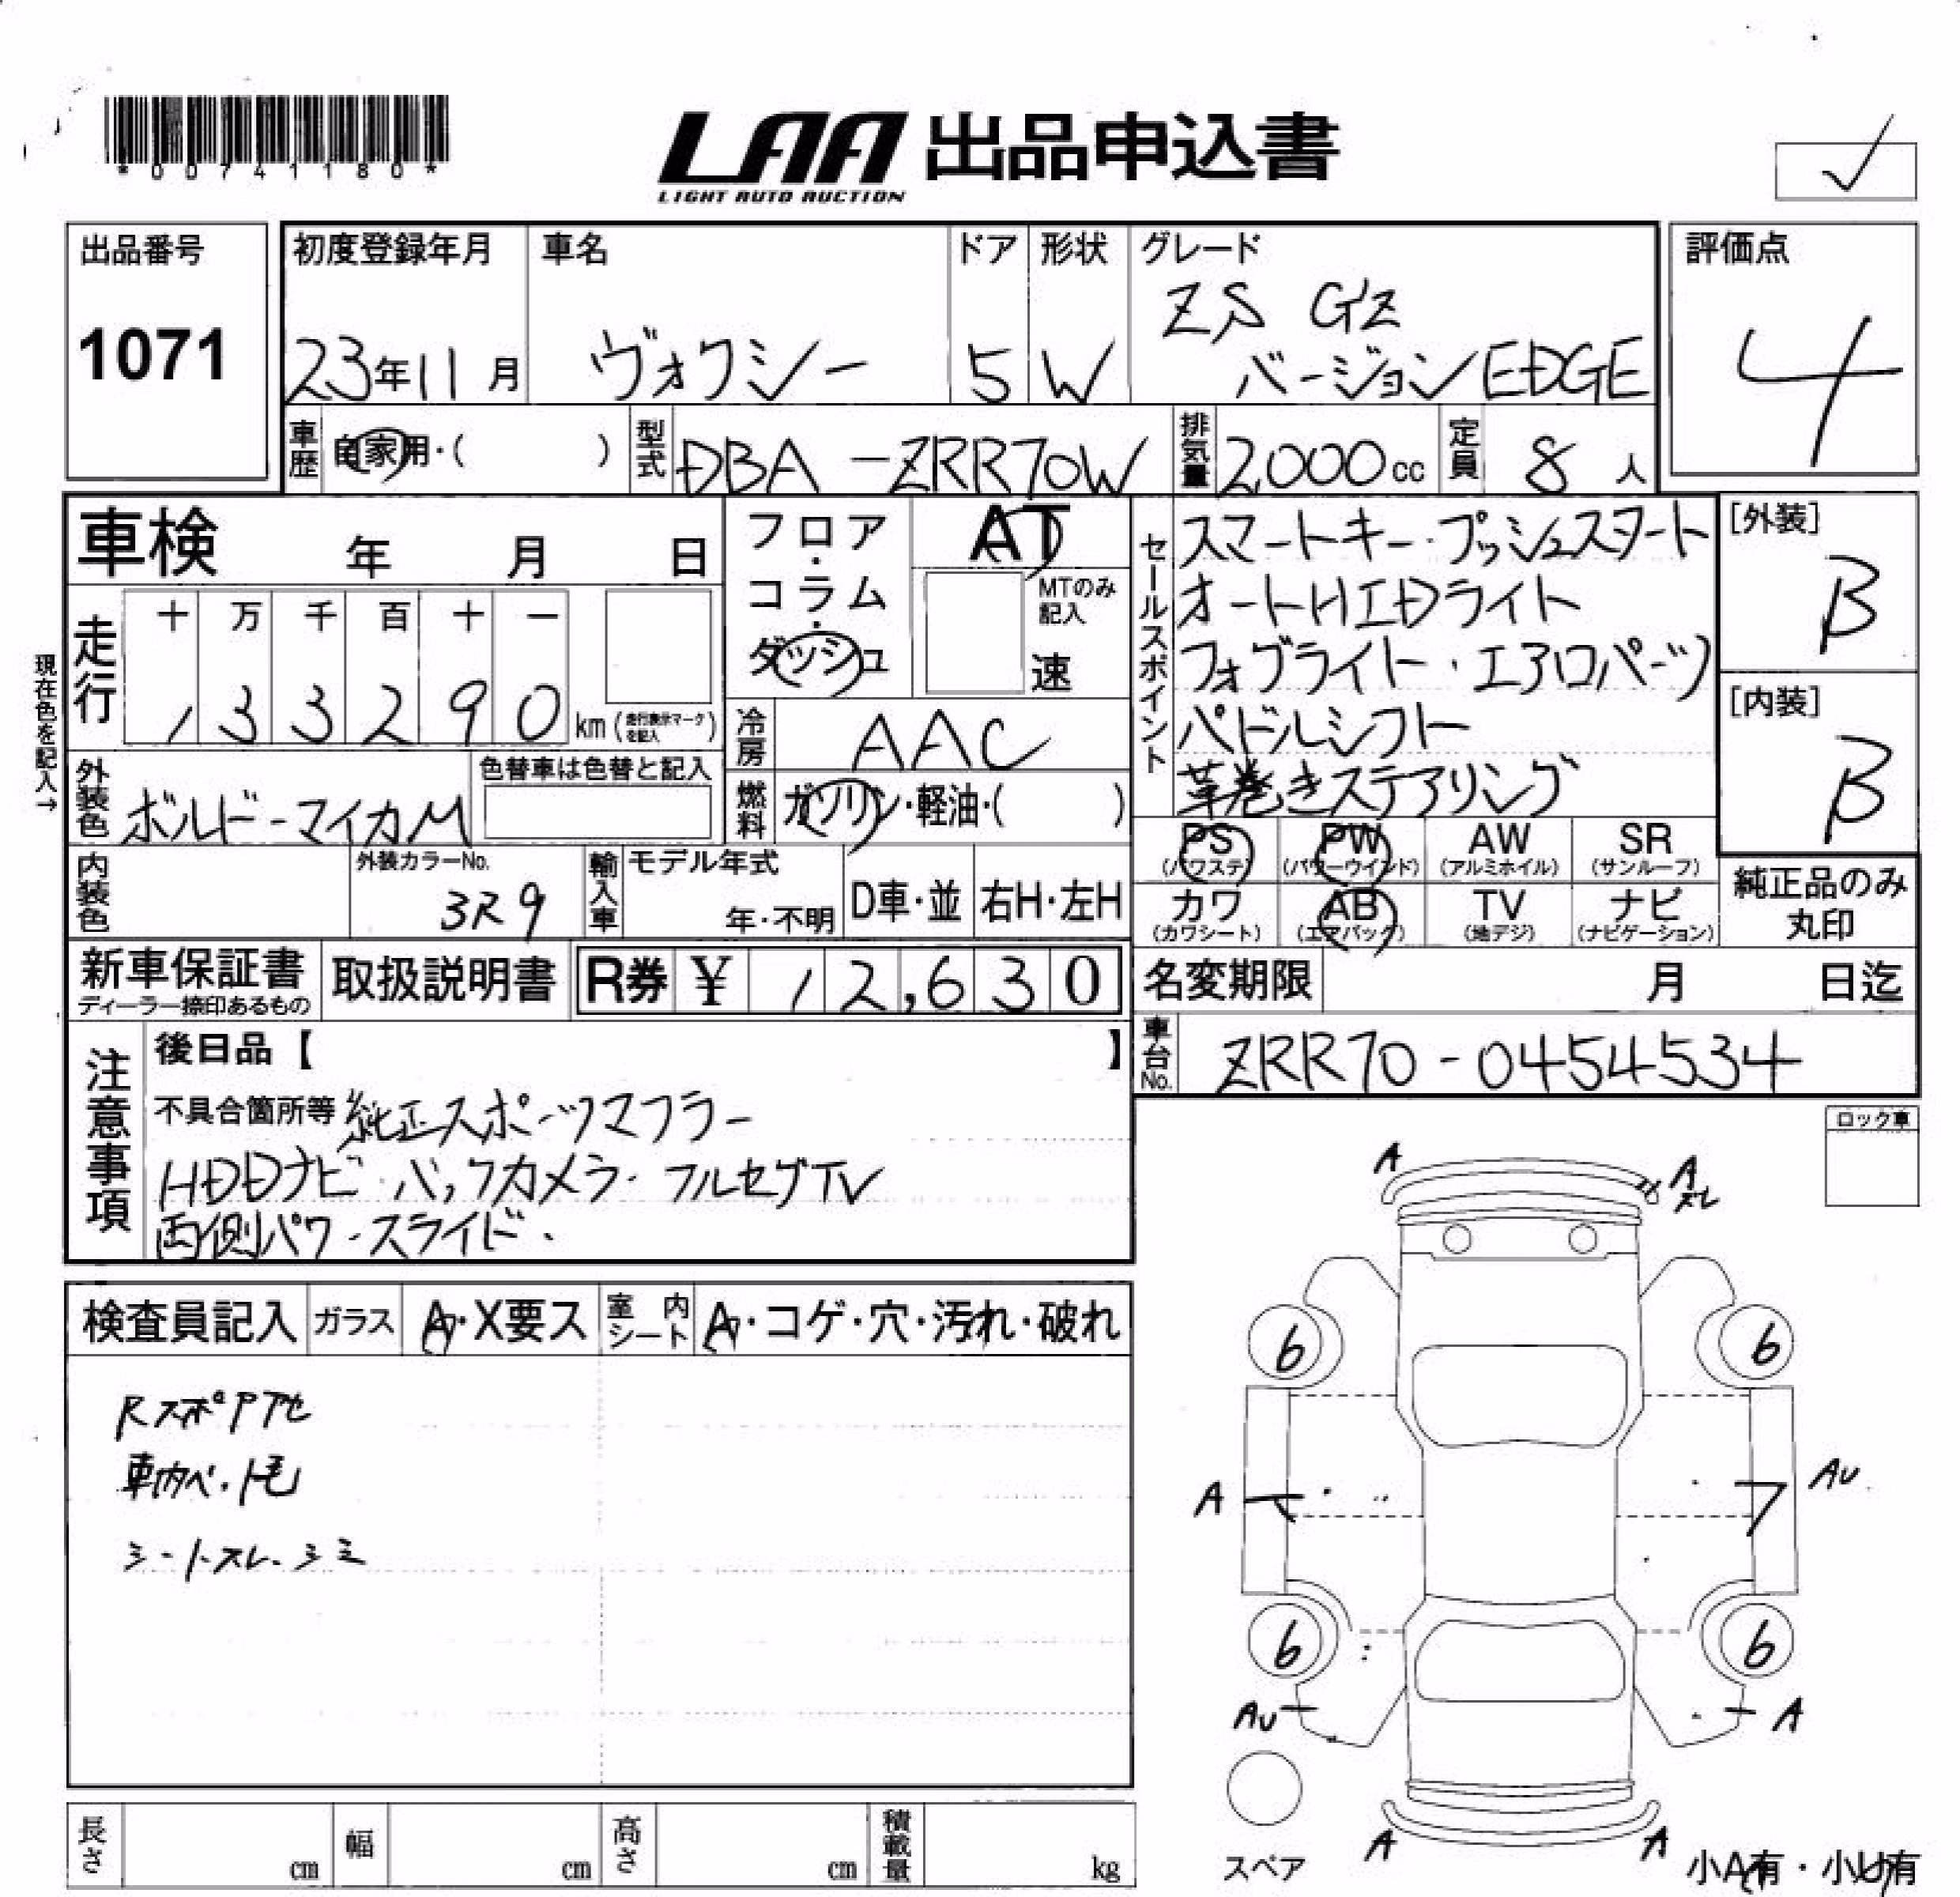 *00741180*
LAA 出品申込書
LIGHT AUTO AUCTION
出品番号
1071
初度登録年月
23年11月
車名
ヴォクシー
ドア
5
形状
W
グレード
ZS G'z
バージョンEDGE
評価点
4
車歴
自家用・( )
型式
DBA-ZRR70W
排気量
2,000cc
定員
8人
車検 年 月 日
現在色を記入→
走行
十 万 千 百 十 一
1 3 3 2 9 0 km(走行表示マークを記入)
フロア・コラム・ダッシュ
AT
MTのみ記入
速
冷房
AAC
燃料
ガソリン・軽油・( )
外装色
ボルドーマイカM
色替車は色替と記入
内装色
外装カラーNo.
3R9
輸入車
モデル年式
年・不明
D車・並
右H・左H
セールスポイント
スマートキー・プッシュスタート
オートHIDライト
フォグライト・エアロパーツ
パドルシフト
革巻きステアリング
[外装]
B
[内装]
B
PS
(パワステ)
PW
(パワーウインド)
AW
(アルミホイル)
SR
(サンルーフ)
カワ
(カワシート)
AB
(エアバック)
TV
(地デジ)
ナビ
(ナビゲーション)
純正品のみ
丸印
新車保証書
ディーラー捺印あるもの
取扱説明書
R券 ¥ 12,630
名変期限 月 日迄
車台No.
ZRR70-0454534
注意事項
後日品【 】
不具合箇所等 純正スポーツマフラー
HDDナビ・バックカメラ・フルセグTV
両側パワースライド・
ロック車
検査員記入
ガラス
A・X要ス
室内シート
A・コゲ・穴・汚れ・破れ
車内ペット毛
シートスレ・シミ
A
A
スレ
6
6
A
AU
6
6
AU
A
スペア
A
A
小A有・小U有
長さ cm
幅 cm
高さ cm
積載量 kg